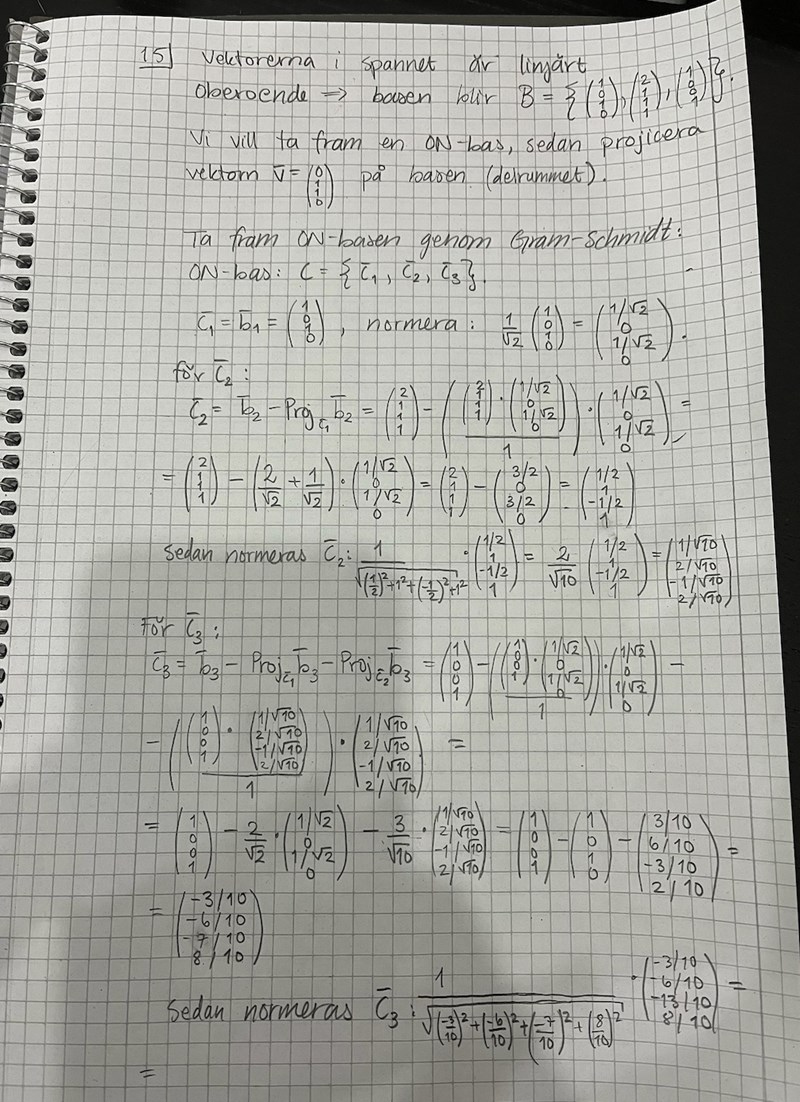 15) Vektorerna i spannet är linjärt
oberoende ⇒ basen blir B = {(1 0 1 0), (2 1 1 1), (1 0 0 1)}.
Vi vill ta fram en ON-bas, sedan projicera
vektorn v̄ = (0 1 1 0) på basen (delrummet).
Ta fram ON-basen genom Gram-Schmidt:
ON-bas: C = {c̄₁, c̄₂, c̄₃}.
c̄₁ = b̄₁ = (1 0 1 0), normera: 1/√2 (1 0 1 0) = (1/√2 0 1/√2 0).
för c̄₂:
c̄₂ = b̄₂ - Proj_c̄₁ b̄₂ = (2 1 1 1) - (((2 1 1 1) · (1/√2 0 1/√2 0))/1) · (1/√2 0 1/√2 0) =
= (2 1 1 1) - (2/√2 + 1/√2) · (1/√2 0 1/√2 0) = (2 1 1 1) - (3/2 0 3/2 0) = (1/2 1 -1/2 1)
Sedan normeras c̄₂: 1/√((1/2)² + 1² + (-1/2)² + 1²) · (1/2 1 -1/2 1) = 2/√10 (1/2 1 -1/2 1) = (1/√10 2/√10 -1/√10 2/√10)
För c̄₃:
c̄₃ = b̄₃ - Proj_c̄₁ b̄₃ - Proj_c̄₂ b̄₃ = (1 0 0 1) - (((1 0 0 1) · (1/√2 0 1/√2 0))/1) · (1/√2 0 1/√2 0) -
- (((1 0 0 1) · (1/√10 2/√10 -1/√10 2/√10))/1) · (1/√10 2/√10 -1/√10 2/√10) =
= (1 0 0 1) - 2/√2 · (1/√2 0 1/√2 0) - 3/√10 · (1/√10 2/√10 -1/√10 2/√10) = (1 0 0 1) - (1 0 1 0) - (3/10 6/10 -3/10 2/10) =
= (-3/10 -6/10 -7/10 8/10)
Sedan normeras c̄₃: 1/√((-3/10)² + (-6/10)² + (-7/10)² + (8/10)²) · (-3/10 -6/10 -13/10 8/10) =
=